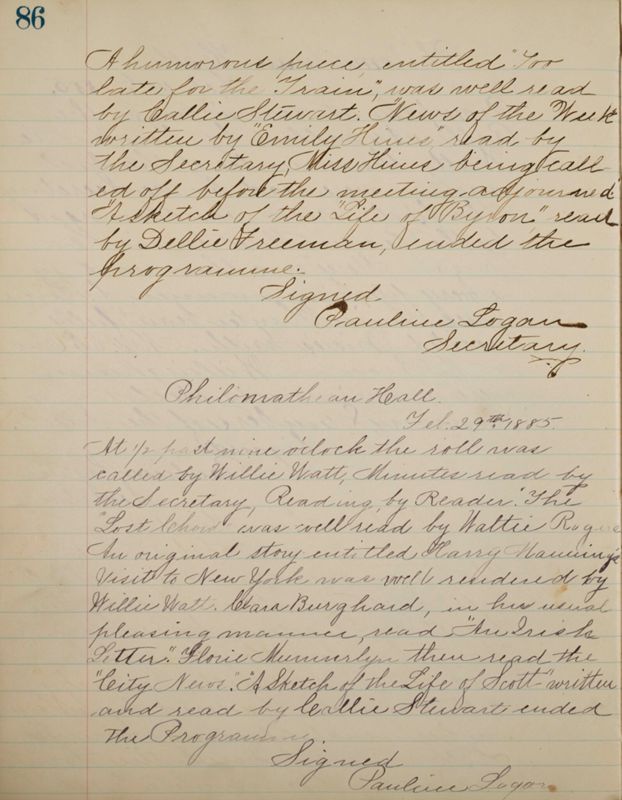 86
A humorous piece, entitled "Too
late for the Train", was well read
by Callie Stewart. "News of the Week
written by "Emily Hines" read by
the Secretary, Miss Hines being call-
ed off before the meeting adjourned
"A sketch of the "Life of Byron" read
by Dellie Freeman, ended the
programme.
Signed
Pauline Logan
Secretary.
Philomathean Hall.
Feb. 29th. 1885.
At 1/2 past nine o'clock the roll was
called by Willie Watt, Minutes read by
the Secretary, Reading, by Reader. "The
"Lost Chord" was well read by Wattie Rogers
An original story entitled Harry Manning's
Visit to New York was well rendered by
Willie Watt. Clara Burghard, in her usual
pleasing manner, read "An Irish
Letter." Florie Munnerlyn then read the
"City News". "A Sketch of the Life of Scott" written
and read by Callie Stewart ended
the Programme.
Signed
Pauline Logan